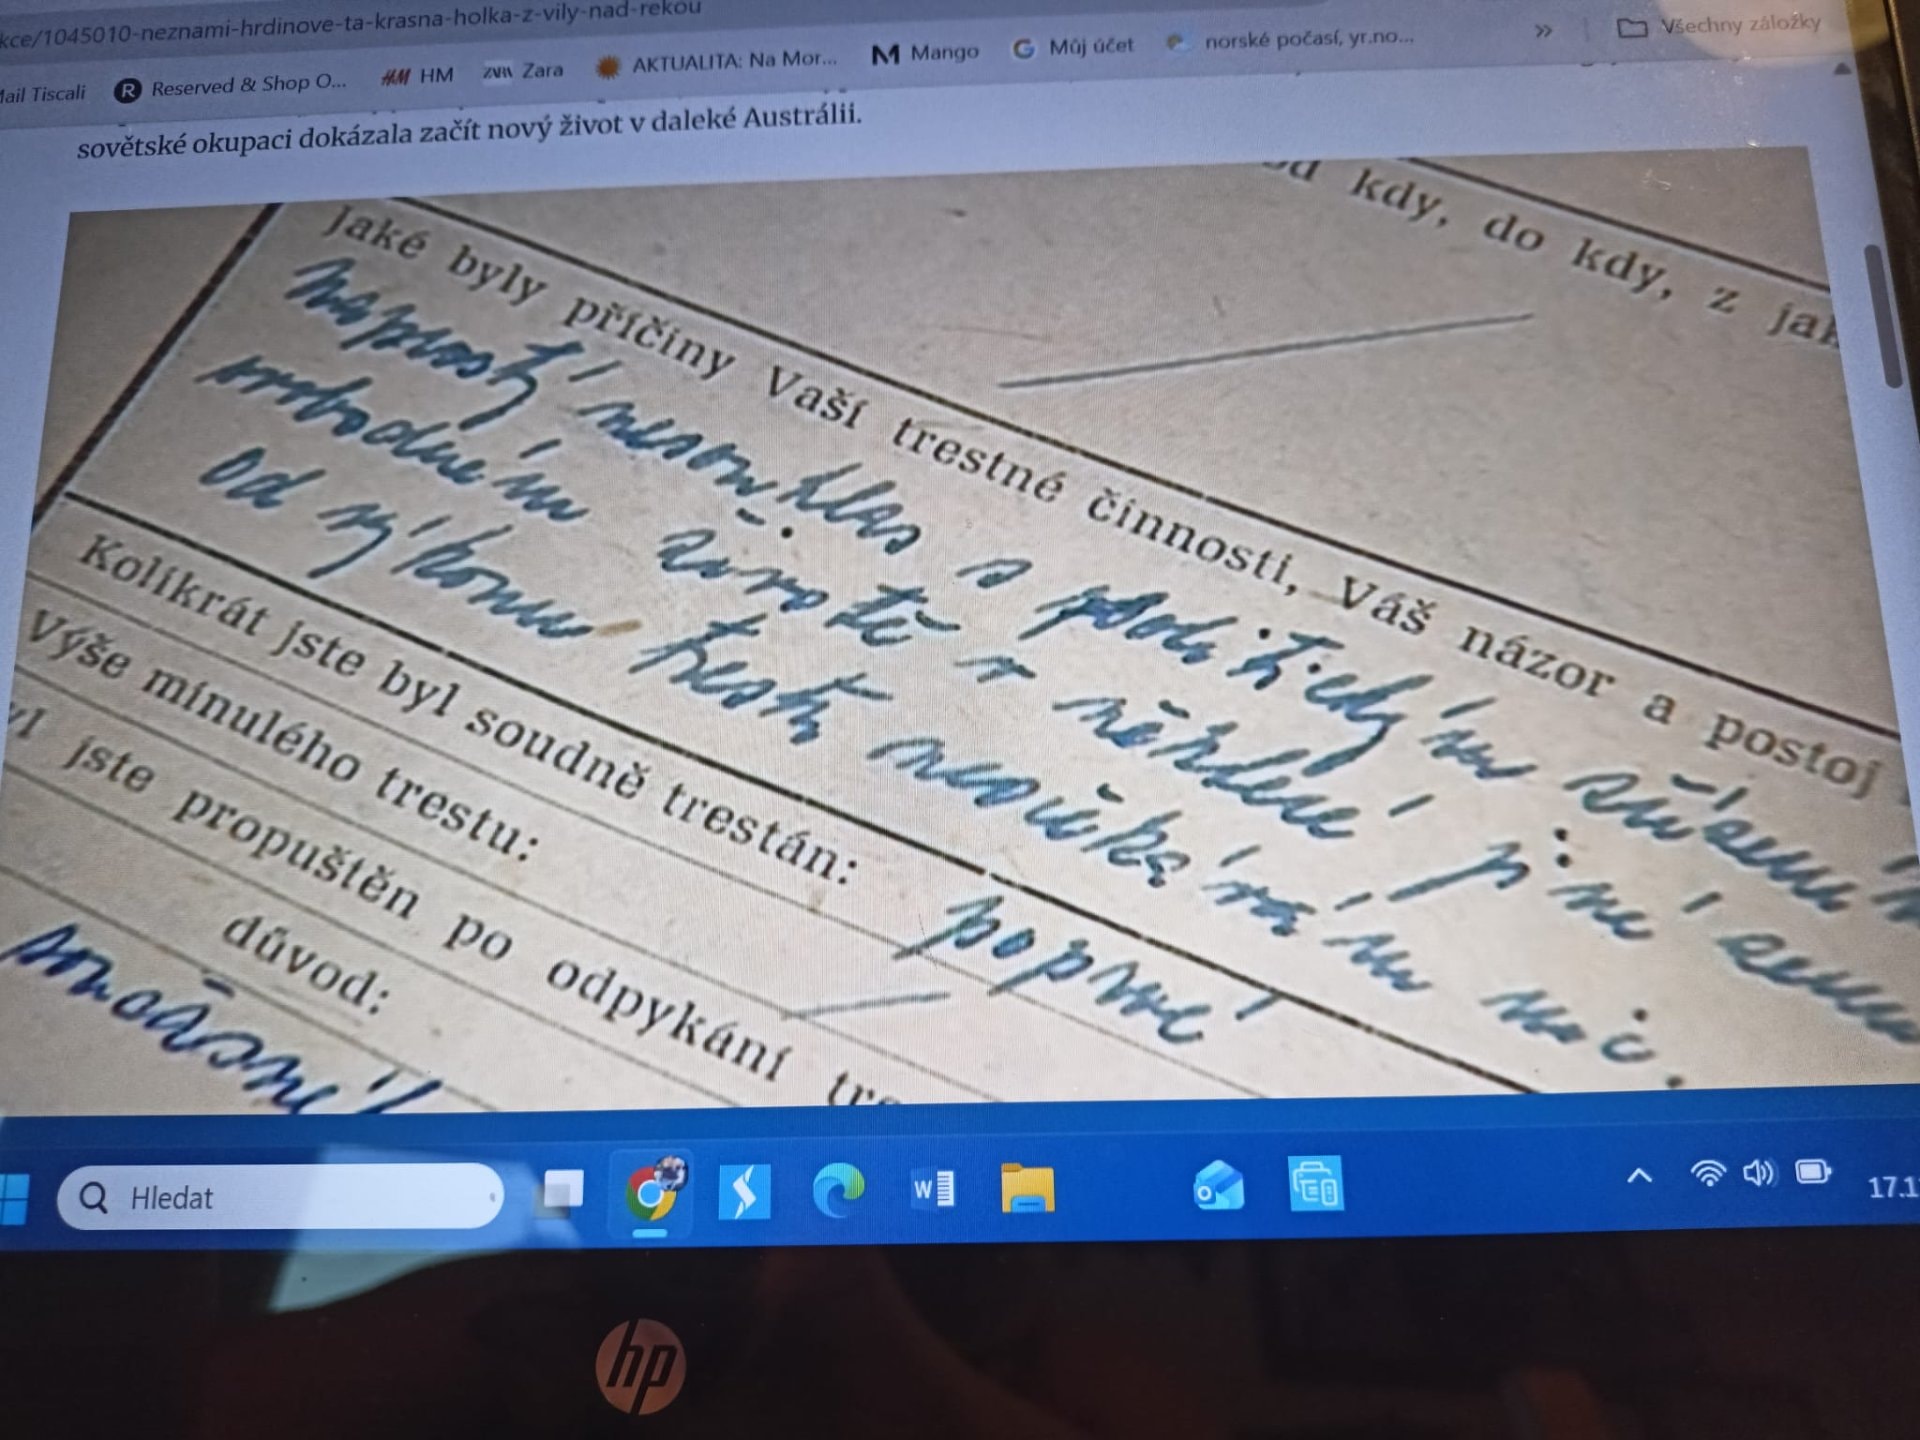 kce/1045010-neznami-hrdinove-ta-krasna-holka-z-vily-nad-rekou
Mail Tiscali R Reserved & Shop O... HM HM ZARA Zara AKTUALITA: Na Mor... M Mango G Můj účet norské počasí, yr.no... » Všechny záložky
sovětské okupaci dokázala začít nový život v daleké Austrálii.
od kdy, do kdy, z jak
Jaké byly příčiny Vaší trestné činnosti, Váš názor a postoj
naprostý nesouhlas s
svobodném životě v
od výkonu trestu neočekávám nic.
Kolikrát jste byl soudně trestán: poprvé
Výše minulého trestu:
yl jste propuštěn po odpykání tre
důvod:
současné
Hledat
W
17.1
hp